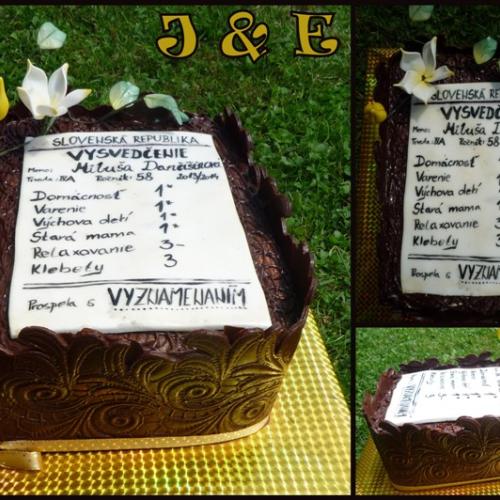 J & E
SLOVENSKÁ REPUBLIKA
VYSVEDČENIE
Meno: Miluša
Trieda: Ročník: 58 2013/2014
Domácnosť 1*
Varenie 1*
Výchova detí 1*
Stará mama 1*
Relaxovanie 3-
Klebety 3
Prospela s VYZNAMENANÍM
SLOVENSKÁ RE
VYSVEDČ
Meno: Miluša D
Ročník: 58
Domácnosť
Varenie
Výchova detí
Stará mama
Relaxovanie
Klebety
Prospela s VYZNAM